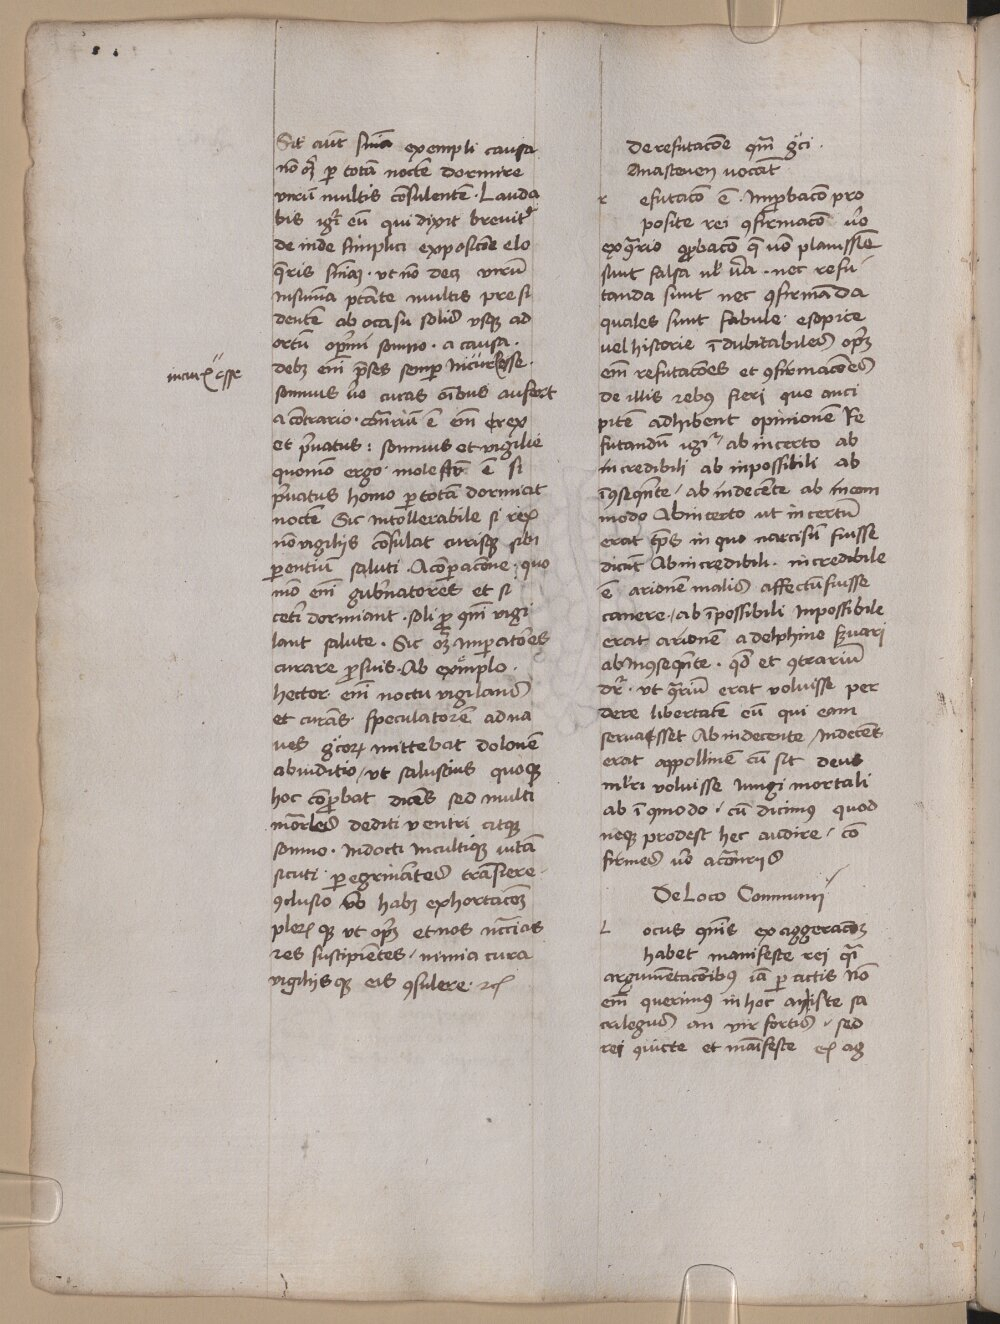 Sit aut̄ sn̄ia exempli causa
nō oꝫ ꝑ totā noctē dormire
virū multis cōsulentē · Lauda
bis igr̄ eū qui dixit brevit᷑
de inde simplici exposicōe elo
q̄ris sn̄iaꝫ · vt nō decꝫ virū
ptāte multis presi
dentē ab occasu solis vsqꝫ ad
ortū opͥmi somno · a causa ·
debꝫ em̄ p̄ses semꝑ incur esse ·
incur esse
somnus v̄o curas oībus aufert
a cōtrario · cōnriū ē em̄ rex
et pͥvatus : somnus et vigilie
quomō ergo molestū ē si
pͥvatus homo ꝑ totā dormiat
noctē Sic intollerabile si rex
nō vigilijs cōsulat curisqꝫ sibi
ꝑentiū saluti · A cōꝑacōne · quo
mō em̄ gub̄natores et si
cet̄i dormiant · soli ꝓ qm̄i vigi
lant salute · Sic oꝫ imꝑatores
curare ꝓ suis · Ab exemplo ·
hector em̄ noctu vigilans
et curās · speculatorē ad na
ues gͨcoꝝ mittebat dolonē
ab iuditio / vt salustius quoqꝫ
hoc cōꝓbat dicēs sed multi
mōrles dediti ventri atqꝫ
somno · indocti incultiqꝫ vitā
sicuti ꝑegrināntes trāsiere ·
ꝯclusio v̄o habꝫ exhortacōeꝫ
pleꝝqꝫ vt opꝫ et nos nc̄cias
res suscipiētes / nimia cura
vigilijsqꝫ eis ꝯsulere · ⁊c̄
de refutacōe qm̄ gͨci ·
Anasceuen vocāt
r efutacō ē · Imꝓbacō pro
posite rei ꝯfirmacō v̄o
ex ꝯͣrio ꝓbacō q̄ v̄o planissīe
sunt falsa vl̄ v̄a · nec refu
tanda sunt nec ꝯfirmāda
quales sunt fabule esopice
vel historie ī dubitabiles opꝫ
em̄ refutacōes et ꝯfirmacōes
de illis rebꝰ fieri que anci
pitē adhibent opinionē Re
futandū igr̄ ab incerto ab
incredibili ab inpossibili ab
īꝯseqn̄te / ab indecēte ab incom
modo Ab incerto ut incertū
erat tp̄s in quo narcisū fuisse
dicūt Ab incredibili · incredibile
ē arionē malis affectū fuisse
canere / ab īpossibili Inpossibile
erat arionē a delphino s̄vari
ab inꝯseqn̄te · qd̄ et ꝯtrariū
dr̄ · vt ꝯͣriū erat voluisse per
dere libertatē eū qui eam
servasset Ab indecente / Indecēs
erat appollinē cū sit deus
ml̄ri voluisse iungi mortali
ab īꝯmodo / cū dicimꝰ quod
neqꝫ prodest hec audire / cō
firmes v̄o a cōnrijs
De Loco Communi
L ocus qm̄is exaggeracōeꝫ
habet manifeste rei qͣi
argumētacōibꝰ iā ꝑactis Nō
em̄ querimꝰ in hoc an iste sa
crilegus an vir fortis / sed
rei ꝯuicte et māifeste ex ag